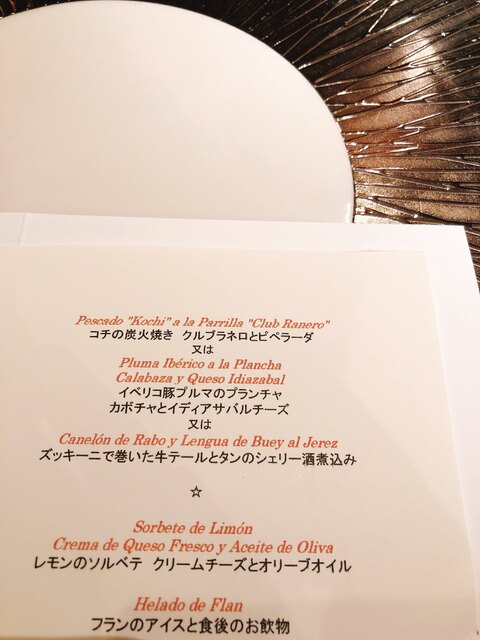 Pescado "Kochi" a la Parrilla "Club Ranero"
コチの炭火焼き クルブラネロとピペラーダ
又は
Pluma Ibérico a la Plancha
Calabaza y Queso Idiazabal
イベリコ豚プルマのプランチャ
カボチャとイディアサバルチーズ
又は
Canelón de Rabo y Lengua de Buey al Jerez
ズッキーニで巻いた牛テールとタンのシェリー酒煮込み
☆
Sorbete de Limón
Crema de Queso Fresco y Aceite de Oliva
レモンのソルベテ クリームチーズとオリーブオイル
Helado de Flan
フランのアイスと食後のお飲物